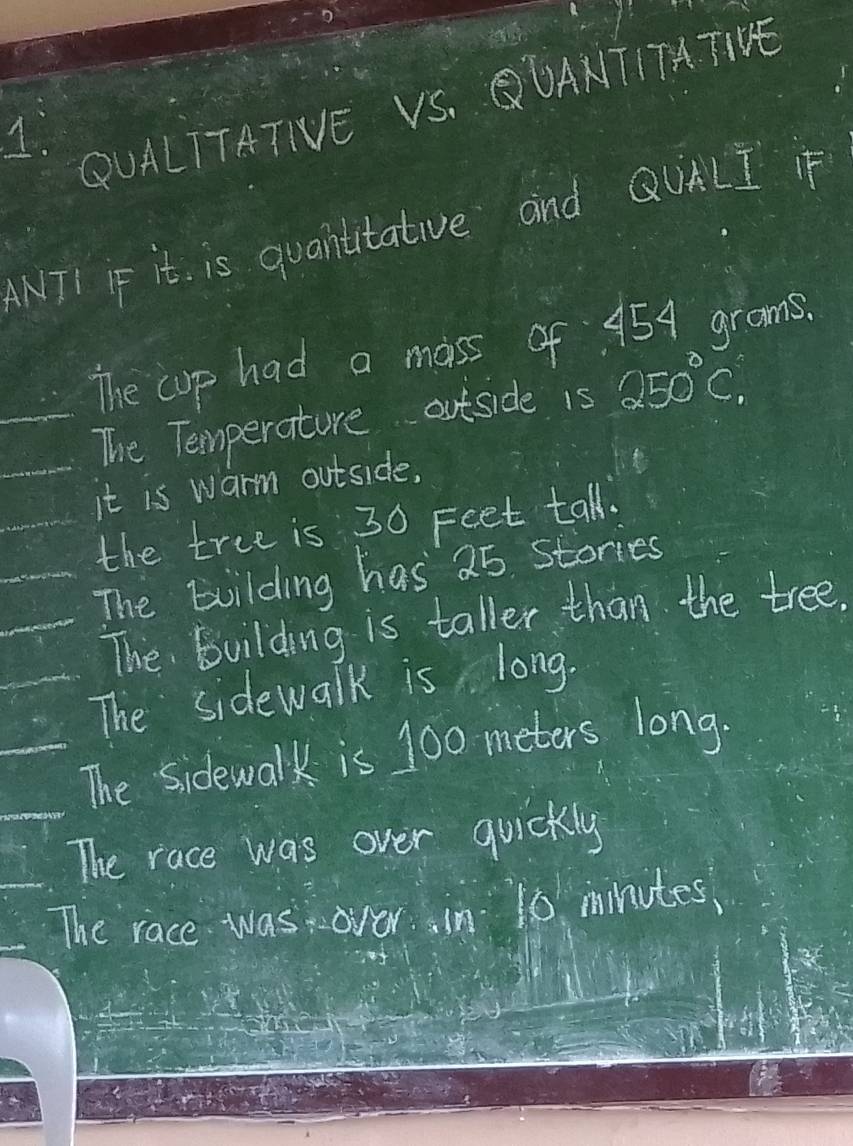 1. QUALITATIVE VS. QUANTITATIVE
ANTI IF it is quantitative and QUALI IF
The cup had a mass of 454 grams.
The Temperature outside is 250°C.
it is warm outside.
the tree is 30 Feet tall.
The building has 25 Stories
The building is taller than the tree.
The sidewalk is long.
The sidewalk is 100 meters long.
The race was over quickly
The race was over in 10 minutes.